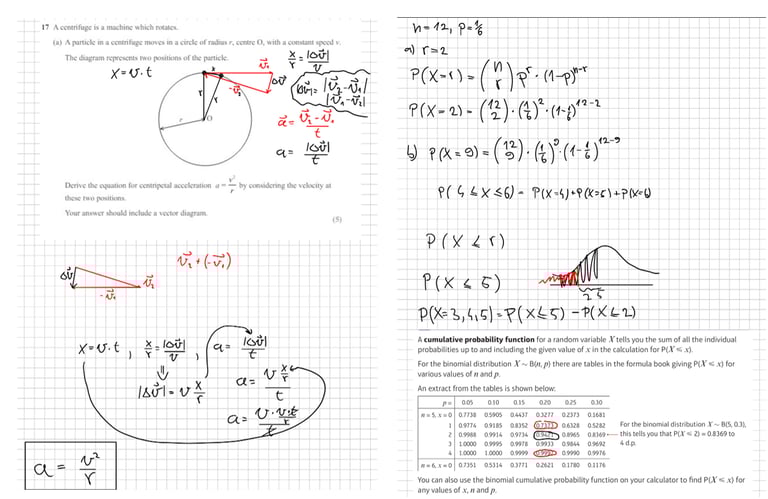 17 A centrifuge is a machine which rotates.
(a) A particle in a centrifuge moves in a circle of radius r, centre O, with a constant speed v.
The diagram represents two positions of the particle.
x = v · t
x
r
r
r
O
v⃗₁
-v⃗₂
Δv⃗
x/r = |Δv⃗|/v
|Δv⃗| = |v⃗₂-v⃗₁|
|v⃗₁-v⃗₂|
a⃗ = (v⃗₂ - v⃗₁)/t
a = |Δv⃗|/t
Derive the equation for centripetal acceleration a = v²/r by considering the velocity at
these two positions.
Your answer should include a vector diagram.
(5)
v⃗₂ + (-v⃗₁)
Δv⃗
v⃗₂
-v⃗₁
x = v · t , x/r = |Δv⃗|/v , a = |Δv⃗|/t
⇓
|Δv⃗| = v x/r
a = v x/r / t
a = v · v·t/r / t
a = v²/r
n = 12, p = 1/6
a) r = 2
P(X=r) = (n r) pʳ · (1-p)ⁿ⁻ʳ
P(X=2) = (12 2) · (1/6)² · (1-1/6)¹²⁻²
b) P(X=9) = (12 9) · (1/6)⁹ · (1-1/6)¹²⁻⁹
P(4 ≤ X ≤ 6) = P(X=4)+P(X=5)+P(X=6)
P(X ≤ r)
P(X ≤ 5)
2 5
P(X=3,4,5) = P(X≤5) - P(X≤2)
A cumulative probability function for a random variable X tells you the sum of all the individual
probabilities up to and including the given value of x in the calculation for P(X ≤ x).
For the binomial distribution X ~ B(n, p) there are tables in the formula book giving P(X ≤ x) for
various values of n and p.
An extract from the tables is shown below:
p = 0.05 0.10 0.15 0.20 0.25 0.30
n = 5, x = 0 0.7738 0.5905 0.4437 0.3277 0.2373 0.1681
1 0.9774 0.9185 0.8352 0.7373 0.6328 0.5282
2 0.9988 0.9914 0.9734 0.9421 0.8965 0.8369
3 1.0000 0.9995 0.9978 0.9933 0.9844 0.9692
4 1.0000 1.0000 0.9999 0.9997 0.9990 0.9976
n = 6, x = 0 0.7351 0.5314 0.3771 0.2621 0.1780 0.1176
For the binomial distribution X ~ B(5, 0.3),
this tells you that P(X ≤ 2) = 0.8369 to
4 d.p.
You can also use the binomial cumulative probability function on your calculator to find P(X ≤ x) for
any values of x, n and p.